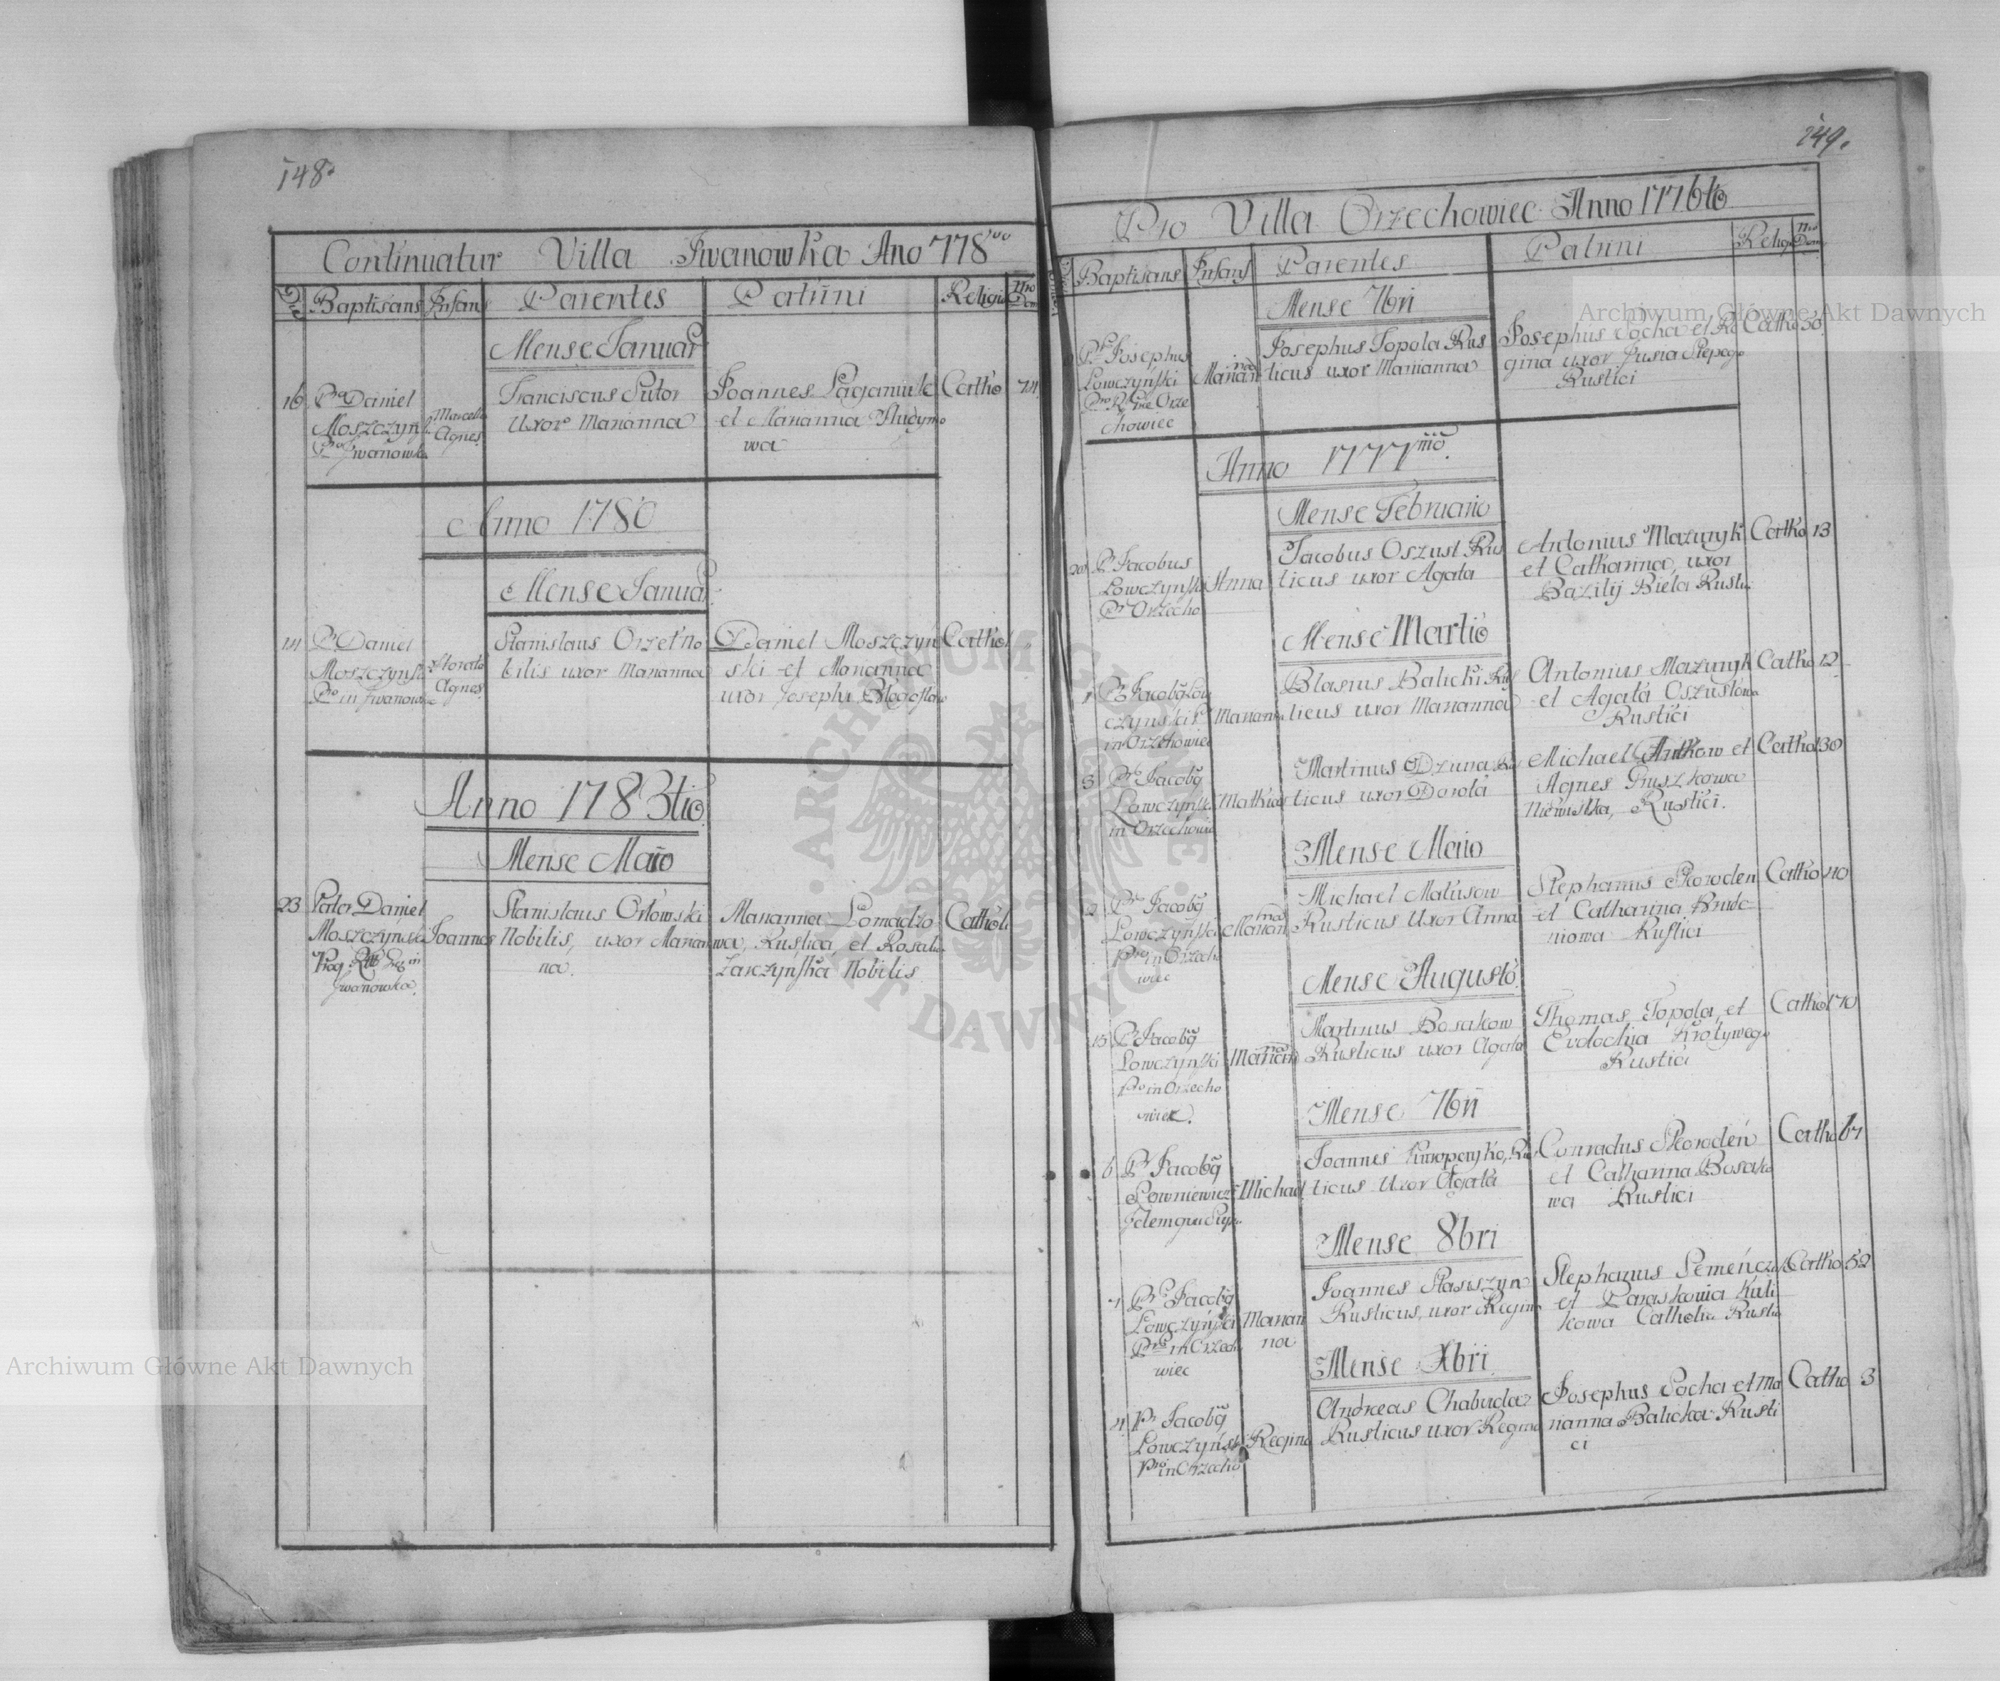 148.
Continuatur Villa Iwanowka Ano 778
Die Baptisans Infans Parentes Patrini Religio Nro Dom
Mense Januar
16 Pr Daniel
Moszczyns
Pro Iwanowka
Marcella
Agnes
Franciscus Sutor
Uxor Marianna
Joannes
et Marianna
wa
Catho
Anno 1780
Mense Janua
Pr Daniel
Moszczyns
Pro in Iwanow
Agnes
Stanislaus Orzeł No
bilis uxor Marianna
Daniel Moszczyń
ski et Marianna
uxor Josephi
Catho
Anno 1783tio
Mense Maio
23 Pater Daniel
Moszczynski
Iwanowka
Joannes
Stanislaus Orłowski
Nobilis, uxor Marian
na.
Marianna Lomadzo
wa, Rustica et Rosalia
Zarczyńska Nobilis
Catholi
149.
Pro Villa Orzechowiec Anno 1776to
Baptisans Infans Parentes Patrini Religio Nro Dom
Mense 7bri
Pr Josephus
Lowczyński
Orze
chowiec
Marianna
Josephus Topola Rus
ticus uxor Mariianna
Josephus Socha et Re
gina uxor
Rustici
Catho 50
Anno 1777mo
Mense Februario
20 Pr Jacobus
Lowczynski
Pr Orzecho
Anna
Jacobus Oszust Rus
ticus uxor Agata
Antonius Mazuryk
et Catharina, uxor
Bazilij Biela Rusti
Catho 13
Mense Martio
1 Pr Jacobg Low
czynski
in Orzechowiec
Mariana
Blasius Balicki Rus
ticus uxor Marianna
Antonius Mazuryk
et Agata Oszustowa
Rustici
Catho 12
3 Pr Jacobg
Lowczyńs
in Orzechowie
Mathias
Martinus Dziura Rus
ticus uxor Dorota
Michael et
Agnes Gruszkowa
Rustici.
Catho 130
Mense Maiio
2 Pr Jacobg
Lowczyński
Pro in Orzecho
wiec
Marianna
Michael Matusow
Rusticus Uxor Anna
Stephanus Skoroden
et Catharina
niowa Rustici
Catho 40
Mense Augusto
15 Pr Jacobg
Lowczyński
Pro in Orzecho
wiec.
Marianna
Martinus Bosakow
Rusticus uxor Agata
Thomas Topola, et
Evdochia Krotywego
Rustici
Catho 170
Mense 7bri
6 Pr Jacobg
Lowniewicz
Michael
Joannes Rus
ticus Uxor Agata
Conradus Skorodeń
et Catharina Bosako
wa Rustici
Catho 67
Mense 8bri
Pr Jacobg
Lowczyński
Pro in Orzecho
wiec
Marian
na
Joannes Stasiszyn
Rusticus, uxor Regina
Stephanus Semeńczuk
et Paraskowia Kuli
kowa Catholic Rustic
Catho 52
Mense Xbri
4 Pr Jacobg
Lowczyński
Pro in Orzecho
Regina
Andreas Chabuda
Rusticus uxor Regina
Josephus Socha et Ma
rianna Balicka Rusti
ci
Catho 3
Archiwum Główne Akt Dawnych
Archiwum Główne Akt Dawnych
ARCHIWUM GŁÓWNE AKT DAWNYCH